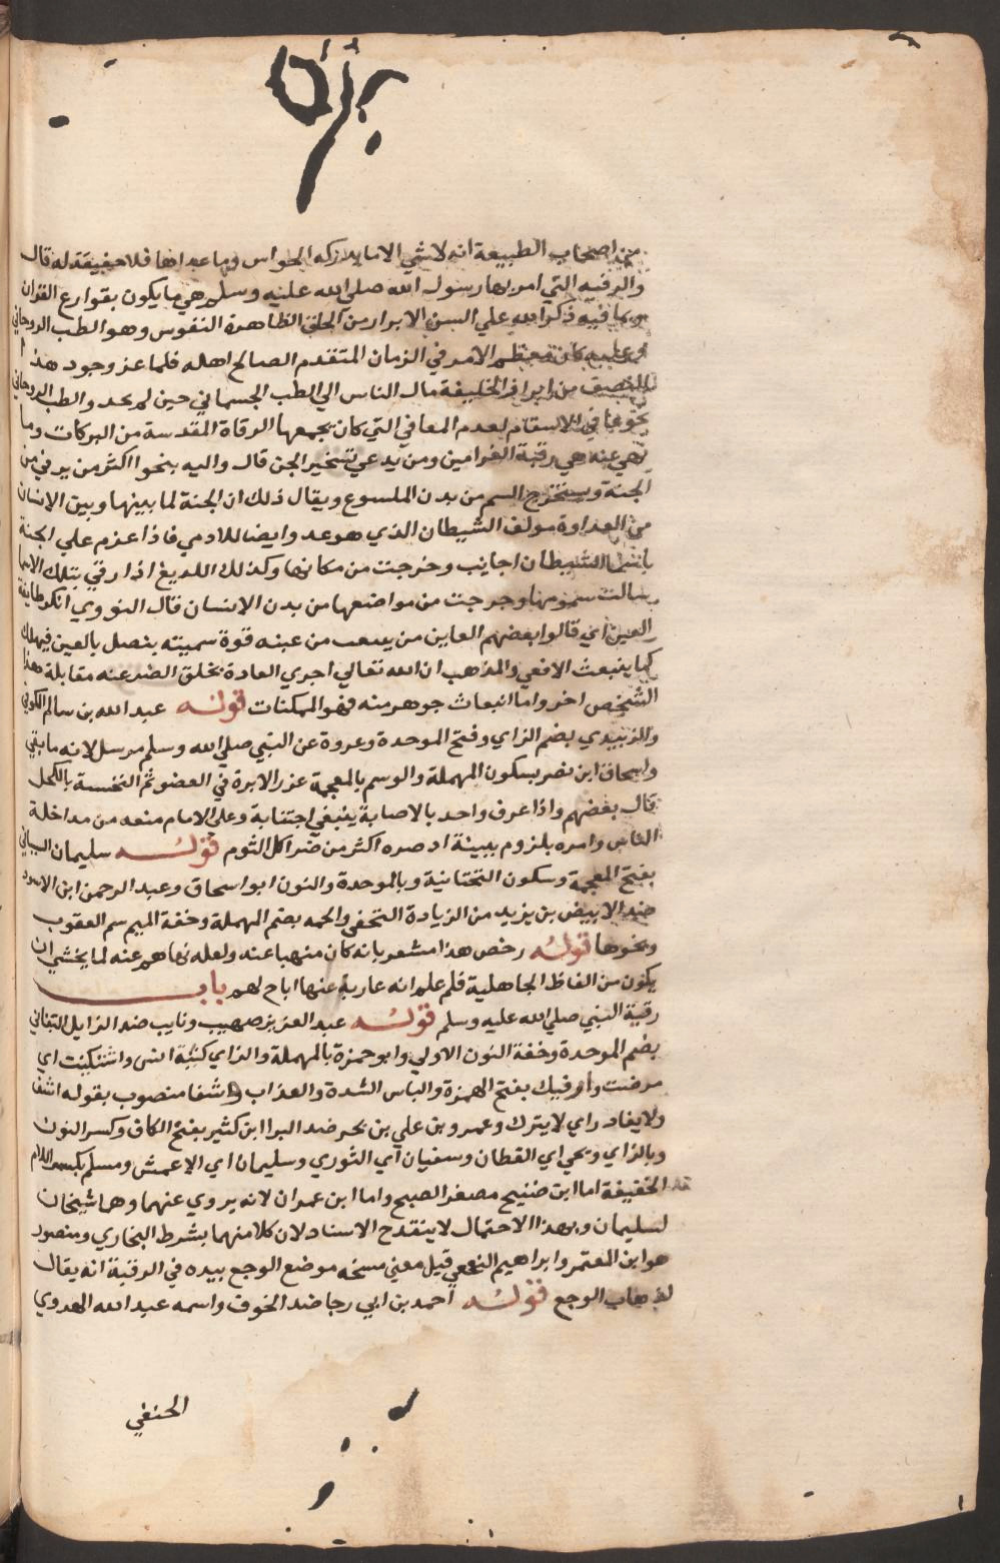 اصحاب الطبيعة انه لا شي الا ما يدركه الحواس وما عداها فلا حقيقة له قال
والرقية التي امر بها رسول الله صلي الله عليه وسلم هي ما يكون بقوارع القران
وبما فيه ذكر الله علي السن الابرار من الخلق الطاهرة النفوس وهو الطب الروحاني
وعليه كان معظم الامر في الزمان المتقدم الصالح اهله فلما عز وجود هذا
الصنف من ابرار الخليقة مال الناس الي الطب الجسماني حين لم يجد والطب الروحاني
نجوعا في الاسقام لعدم المعاني التي كان يجمعها الرقاة المقدسة من البركات وما
نهي عنه هي رقية العزامين ومن يدعي تسخير الجن قال واليه ينحوا اكثر من يرقي من
الجنة ويستخرج السم من بدن الملسوع ويقال ذلك ان الجنة لما بينها وبين الانسان
من العداوة مولف الشيطان الذي هو عد وايضا للادمي فاذا عزم علي الجنة
باسما الشيطان اجابت وخرجت من مكانها وكذلك اللديغ اذا رقي بتلك الاسما
سالت سمومها وجرجت من مواضعها من بدن الانسان قال النووي انكر طايفة
العين اي قالوا بعضهم العاين من يبعث من عينه قوة سمية يتصل بالعين فيهلك
كما ينبعث الافعي والمذهب ان الله تعالي اجري العادة بخلق الضر عنه مقابلة هذا
الشخص اخر واما انبعاث جوهر منه فهو الممكنات قوله عبد الله بن سالم الكوفي
والزبيدي بضم الزاي وفتح الموحدة وعروة عن النبي صلي الله وسلم مرسل لانه ما بقي
واسحاق ابن نصر بسكون المهملة والوسم بالمعجمة غرز الابرة في العضو ثم التخنسة بالكحل
قال بعضهم واذا عرف واحد بالاصابة ينبغي اجتنابه وعلي الامام منعه من مداخلة
الناس وامره بلزوم بيته اذ ضره اكثر من ضر اكل الثوم قوله سليمان الشيباني
بفتح المعجمة وسكون التحتانية وبالموحدة والنون ابو اسحاق وعبد الرحمن ابن الاسود
ضد الابيض بن يزيد من الزيادة النخعي والحمه بضم المهملة وخفة الميم سم العقوب
ونحوها قوله رخص هذا مشعر بانه كان منهيا عنه ولعله نهاهم عنه لما يخشي ان
يكون من الفاظ الجاهلية فلم علم انه عارية عنها اباح لهم باب
رقية النبي صلي الله عليه وسلم قوله عبد العزيز صهيب وثابت ضد الزايل البناني
بضم الموحدة وخفة النون الاولي وابو حمزة بالمهملة والزاي كنية انس واشتكيت اي
مرضت وارقيك بفتح الهمزة والباس الشدة والعذاب واشفا منصوب بقوله اشف
ولا يغادر اي لا يترك وعمرو بن علي بن بحر ضد البر ابن كثير بفتح الكاف وكسر النون
وبالزاي ويحي اي القطان وسفيان اي الثوري وسليمان اي الاعمش ومسلم بكسر اللام
الخفيفة اما ابن صبيح مصغر الصبح واما ابن عمران لانه يروي عنهما وهما شيخان
لسليمان وبهذا الاحتمال لا ينقدح الاسناد لان كلا منهما بشرط البخاري ومنصور
هو ابن المعتمر وابراهيم النخعي قيل معني مسحه موضع الوجع بيده في الرقية انه يقال
لذهاب الوجع قوله احمد بن ابي رجا ضد الخوف واسمه عبد الله الهدوي
الحنفي